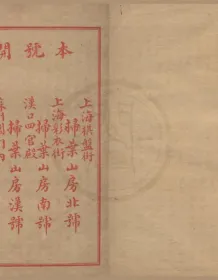 本號開
上海棋盤街
掃葉山房北號
上海彩衣街
掃葉山房南號
漢口四官殿
掃葉山房漢號